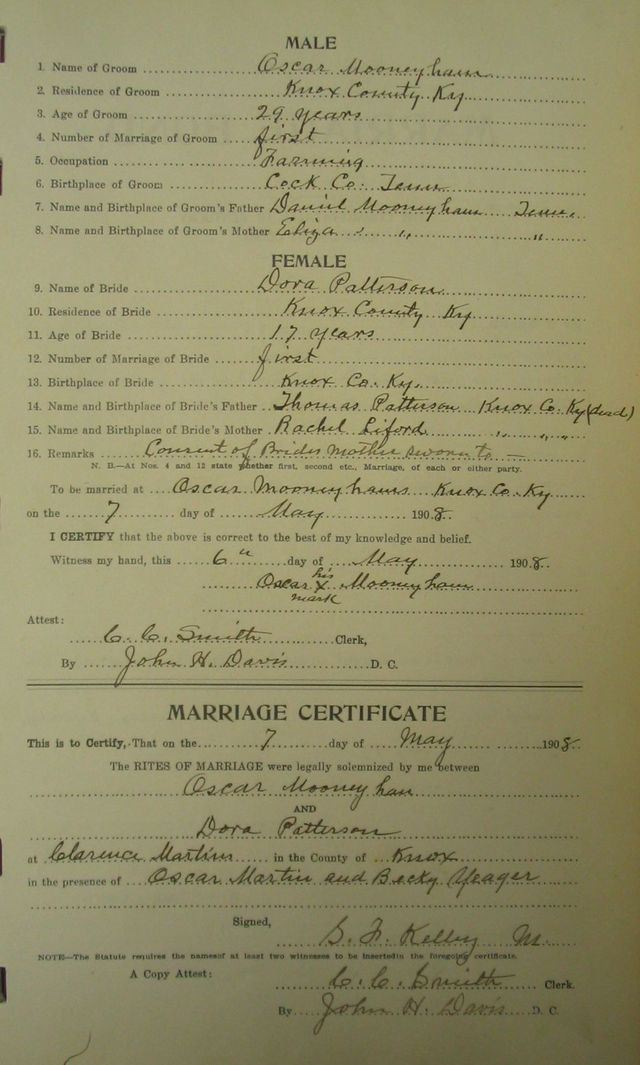 MALE
1. Name of Groom Oscar Mooneyham
2. Residence of Groom Knox County Ky
3. Age of Groom 29 years
4. Number of Marriage of Groom first
5. Occupation Farming
6. Birthplace of Groom Cock Co. Tenn
7. Name and Birthplace of Groom's Father Daniel Mooneyham Tenn.
8. Name and Birthplace of Groom's Mother Eliza " " "
FEMALE
9. Name of Bride Dora Patterson
10. Residence of Bride Knox County Ky
11. Age of Bride 17 years
12. Number of Marriage of Bride first
13. Birthplace of Bride Knox Co. Ky.
14. Name and Birthplace of Bride's Father Thomas Patterson Knox Co. Ky (dead)
15. Name and Birthplace of Bride's Mother Rachel Liford " " "
16. Remarks Consent of Brides mother sworn to —
N. B.—At Nos. 4 and 12 state whether first, second etc., Marriage, of each or either party.
To be married at Oscar Mooneyhams Knox Co. Ky
on the 7 day of May 1908.
I CERTIFY that the above is correct to the best of my knowledge and belief.
Witness my hand, this 6" day of May 1908
Oscar his x mark Mooneyham
Attest:
C. C. Smith Clerk,
By John H. Davis D. C.
MARRIAGE CERTIFICATE
This is to Certify, That on the 7 day of May 1908.
The RITES OF MARRIAGE were legally solemnized by me between
Oscar Mooneyham
AND
Dora Patterson
at Clarence Martins in the County of Knox
in the presence of Oscar Martin and Becky Yeager
Signed,
Kelley M.
NOTE—The Statute requires the names of at least two witnesses to be inserted in the foregoing certificate.
A Copy Attest:
C. C. Smith Clerk.
By John H. Davis D. C.